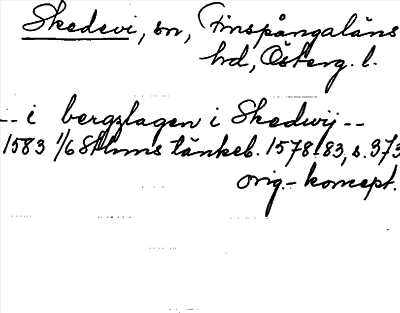 Skedevi, sn, Finspångaläns
hd, Österg. l.
-- i bergzlagen i Skedwij --
1583 1/6 Sthms tänkeb. 1578-83, s. 373
orig.-koncept.